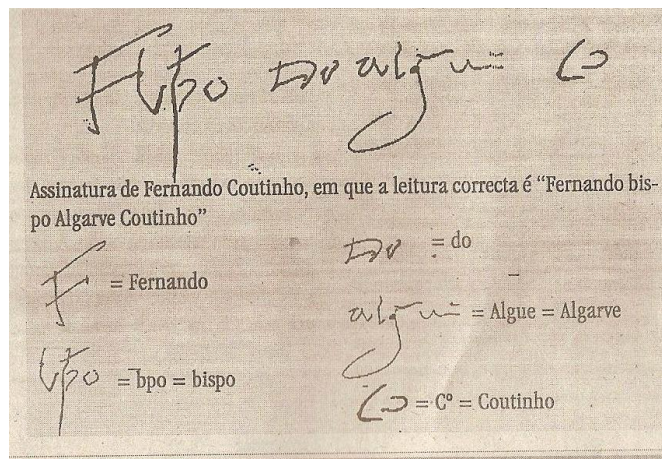 F bpo Do algue Cº
Assinatura de Fernando Coutinho, em que a leitura correcta é “Fernando bis-
po Algarve Coutinho”
F = Fernando
bpo = bpo = bispo
Do = do
algue = Algue = Algarve
Cº = Cº = Coutinho